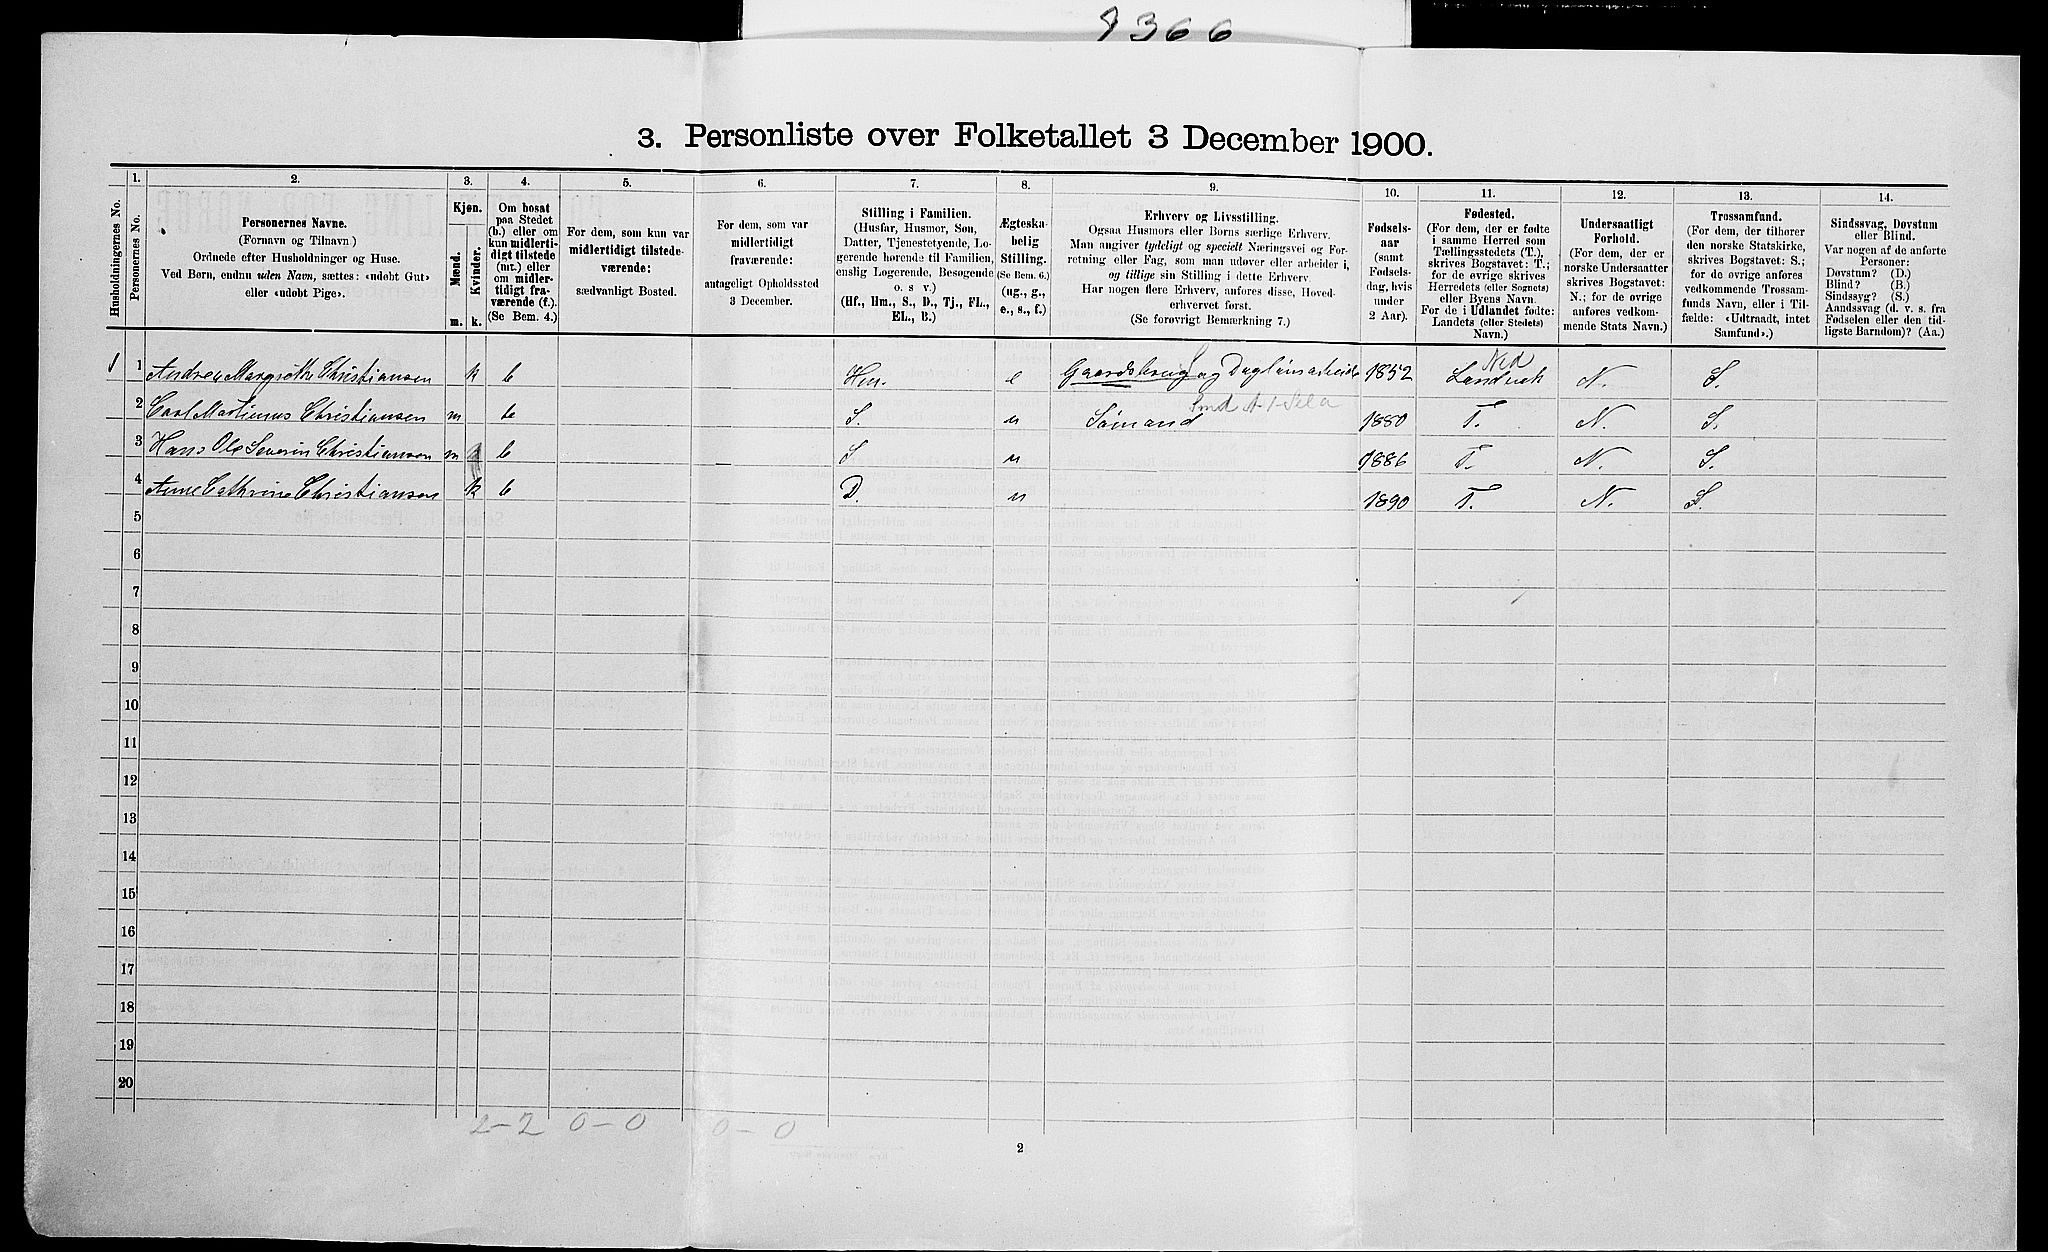 9366
3. Personliste over Folketallet 3 December 1900.
Husholdningernes No.
1.
Personernes No.
2.
Personernes Navne.
(Fornavn og Tilnavn)
Ordnede efter Husholdninger og Huse.
Ved Børn, endnu uden Navn, sættes: «udøbt Gut»
eller «udøbt Pige».
3.
Kjøn.
Mænd.
Kvinder.
m. k.
4.
Om bosat
paa Stedet
(b.) eller om
kun midlerti-
digt tilstede
(mt.) eller
om midler-
tidigt fra-
værende (f.).
(Se Bem. 4.)
5.
For dem, som kun var
midlertidigt tilstede-
værende:
sædvanligt Bosted.
6.
For dem, som var
midlertidigt
fraværende:
antageligt Opholdssted
3 December.
7.
Stilling i Familien.
(Husfar, Husmor, Søn,
Datter, Tjenestetyende, Lo-
gerende hørende til Familien,
enslig Logerende, Besøgende
o. s v.)
(Hf., Hm., S., D., Tj., FL.,
EL., B.)
8.
Ægteska-
belig
Stilling.
(Se Bem. 6.)
(ug., g.,
e., s., f.)
9.
Erhverv og Livsstilling.
Ogsaa Husmors eller Børns særlige Erhverv.
Man angiver tydeligt og specielt Næringsvei og For-
retning eller Fag, som man udøver eller arbeider i,
og tillige sin Stilling i dette Erhverv.
Har nogen flere Erhverv, anføres disse, Hoved-
erhvervet først.
(Se forøvrigt Bemærkning 7.)
10.
Fødsels-
aar
(samt
Fødsels-
dag, hvis
under
2 Aar).
11.
Fødested.
(For dem, der er fødte
i samme Herred som
Tællingsstedets (T.),
skrives Bogstavet: T.;
for de øvrige skrives
Herredets (eller Sognets)
eller Byens Navn.
For de i Udlandet fødte:
Landets (eller Stedets)
Navn.)
12.
Undersaatligt
Forhold.
(For dem, der er
norske Undersaatter
skrives Bogstavet:
N.; for de øvrige
anføres vedkom-
mende Stats Navn.)
13.
Trossamfund.
(For dem, der tilhører
den norske Statskirke,
skrives Bogstavet: S.;
for de øvrige anføres
vedkommende Trossam-
funds Navn, eller i Til-
fælde: «Udtraadt, intet
Samfund».)
14.
Sindssvag, Døvstum
eller Blind.
Var nogen af de anførte
Personer:
Døvstum? (D.)
Blind? (B.)
Sindssyg? (S.)
Aandssvag (d. v. s. fra
Fødselen eller den tid-
ligste Barndom)? (Aa.)
1 1 Andrea Margrethe Christiansen k b Hm. e Gaardsbrug og Daglønsarbeide 1852 Ned Landvik N. S.
2 Carl Martinus Christiansen m b S. u Sømand 1880 T. N. S.
3 Hans Ole Severin Christiansen m b S u 1886 T. N. S.
4 Anne Cathrine Christiansen k b D. u 1890 T. N. S.
5
6
7
8
9
10
11
12
13
14
15
16
17
18
19
20
2-2 0-0 0-0
2